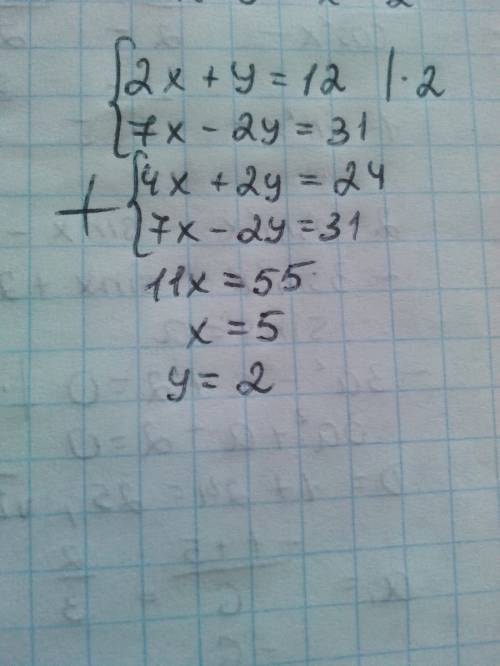 2x + y = 12 | · 2
7x - 2y = 31
+ 4x + 2y = 24
7x - 2y = 31
11x = 55
x = 5
y = 2